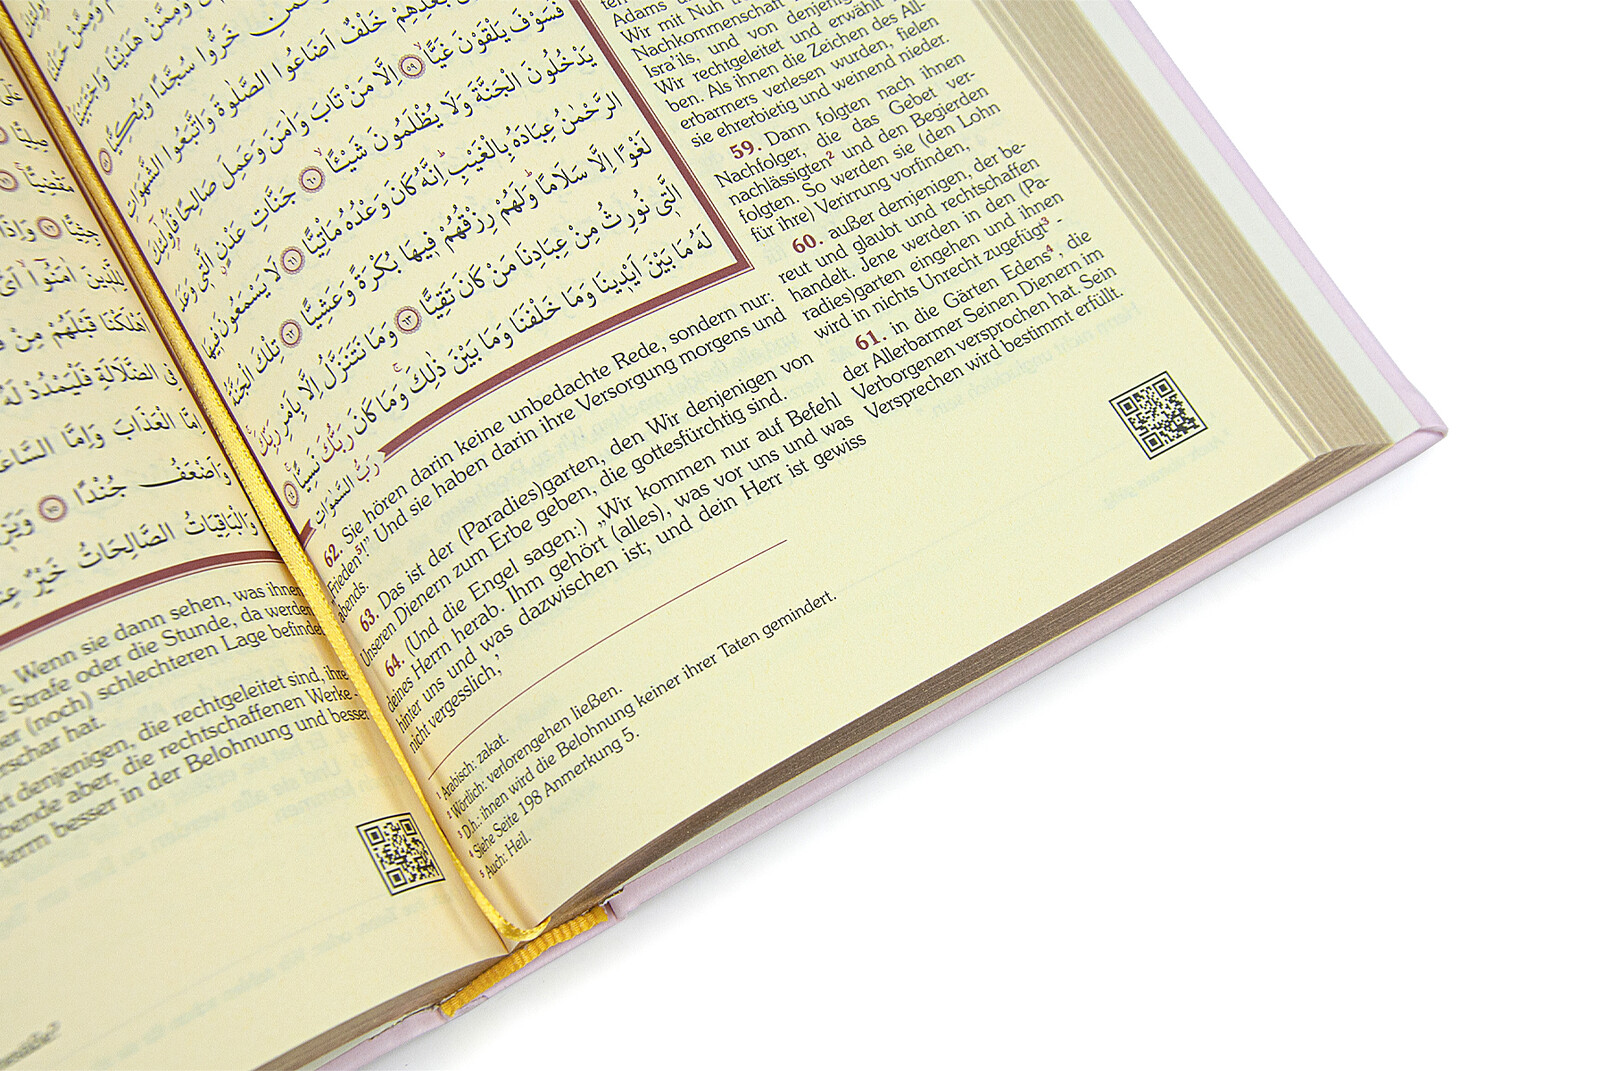 خَرُّوا سُجَّدًا وَبُكِيًّا ٥٨
خَلْفٌ اَضَاعُوا الصَّلٰوةَ وَاتَّبَعُوا الشَّهَوَاتِ
فَسَوْفَ يَلْقَوْنَ غَيًّا ٥٩ اِلَّا مَنْ تَابَ وَاٰمَنَ وَعَمِلَ صَالِحًا فَاُولٰٓئِكَ
يَدْخُلُونَ الْجَنَّةَ وَلَا يُظْلَمُونَ شَيْـًٔا ٦٠ جَنَّاتِ عَدْنٍ الَّتٖي وَعَدَ
الرَّحْمٰنُ عِبَادَهُ بِالْغَيْبِ اِنَّهُ كَانَ وَعْدُهُ مَاْتِيًّا ٦١ لَا يَسْمَعُونَ فٖيهَا
لَغْوًا اِلَّا سَلَامًا وَلَهُمْ رِزْقُهُمْ فٖيهَا بُكْرَةً وَعَشِيًّا ٦٢ تِلْكَ الْجَنَّةُ
الَّتٖي نُورِثُ مِنْ عِبَادِنَا مَنْ كَانَ تَقِيًّا ٦٣ وَمَا نَتَنَزَّلُ اِلَّا بِاَمْرِ رَبِّكَ
لَهُ مَا بَيْنَ اَيْدٖينَا وَمَا خَلْفَنَا وَمَا بَيْنَ ذٰلِكَ وَمَا كَانَ رَبُّكَ نَسِيًّا ٦٤
رَبُّ السَّمٰوَاتِ
Adams
Wir mit Nuh
Nachkommenschaft
Isra'ils, und von denjenigen,
Wir rechtgeleitet und erwählt
ben. Als ihnen die Zeichen des All-
erbarmers verlesen wurden, fielen
sie ehrerbietig und weinend nieder.
59. Dann folgten nach ihnen
Nachfolger, die das Gebet ver-
nachlässigten² und den Begierden
folgten. So werden sie (den Lohn
für ihre) Verirrung vorfinden,
60. außer demjenigen, der be-
reut und glaubt und rechtschaffen
handelt. Jene werden in den (Pa-
radies)garten eingehen und ihnen
wird in nichts Unrecht zugefügt³ -
61. in die Gärten Edens⁴, die
der Allerbarmer Seinen Dienern im
Verborgenen versprochen hat. Sein
Versprechen wird bestimmt erfüllt.
62. Sie hören darin keine unbedachte Rede, sondern nur:
„Frieden⁵!" Und sie haben darin ihre Versorgung morgens und
abends.
63. Das ist der (Paradies)garten, den Wir denjenigen von
Unseren Dienern zum Erbe geben, die gottesfürchtig sind.
64. (Und die Engel sagen:) „Wir kommen nur auf Befehl
deines Herrn herab. Ihm gehört (alles), was vor uns und was
hinter uns und was dazwischen ist; und dein Herr ist gewiss
nicht vergesslich,
¹ Arabisch: zakat.
² Wörtlich: verlorengehen ließen.
³ D.h.: ihnen wird die Belohnung keiner ihrer Taten gemindert.
⁴ Siehe Seite 198 Anmerkung 5.
⁵ Auch: Heil.
اَهْلَكْنَا قَبْلَهُمْ مِنْ
فِي الضَّلَالَةِ فَلْيَمْدُدْ لَهُ
اِمَّا الْعَذَابَ وَاِمَّا السَّاعَةَ
وَاَضْعَفُ جُنْدًا ٧٥
وَالْبَاقِيَاتُ الصَّالِحَاتُ خَيْرٌ
Wenn sie dann sehen, was ihnen
Strafe oder die Stunde, da werden
(noch) schlechteren Lage befindet
hat.
denjenigen, die rechtgeleitet sind, ihre
aber, die rechtschaffenen Werke -
Herrn besser in der Belohnung und besser